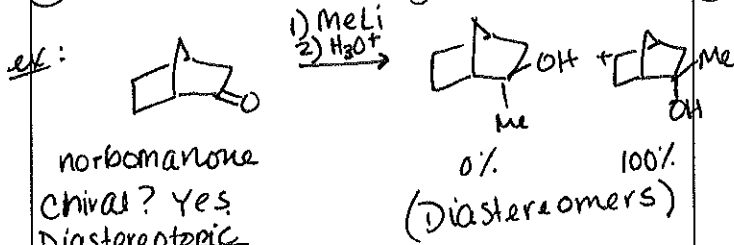 ex:
1) MeLi
2) H3O+
O
OH
Me
+
Me
OH
norbornanone
0%
100%
Chiral? Yes
(Diastereomers)
Diastereotopic